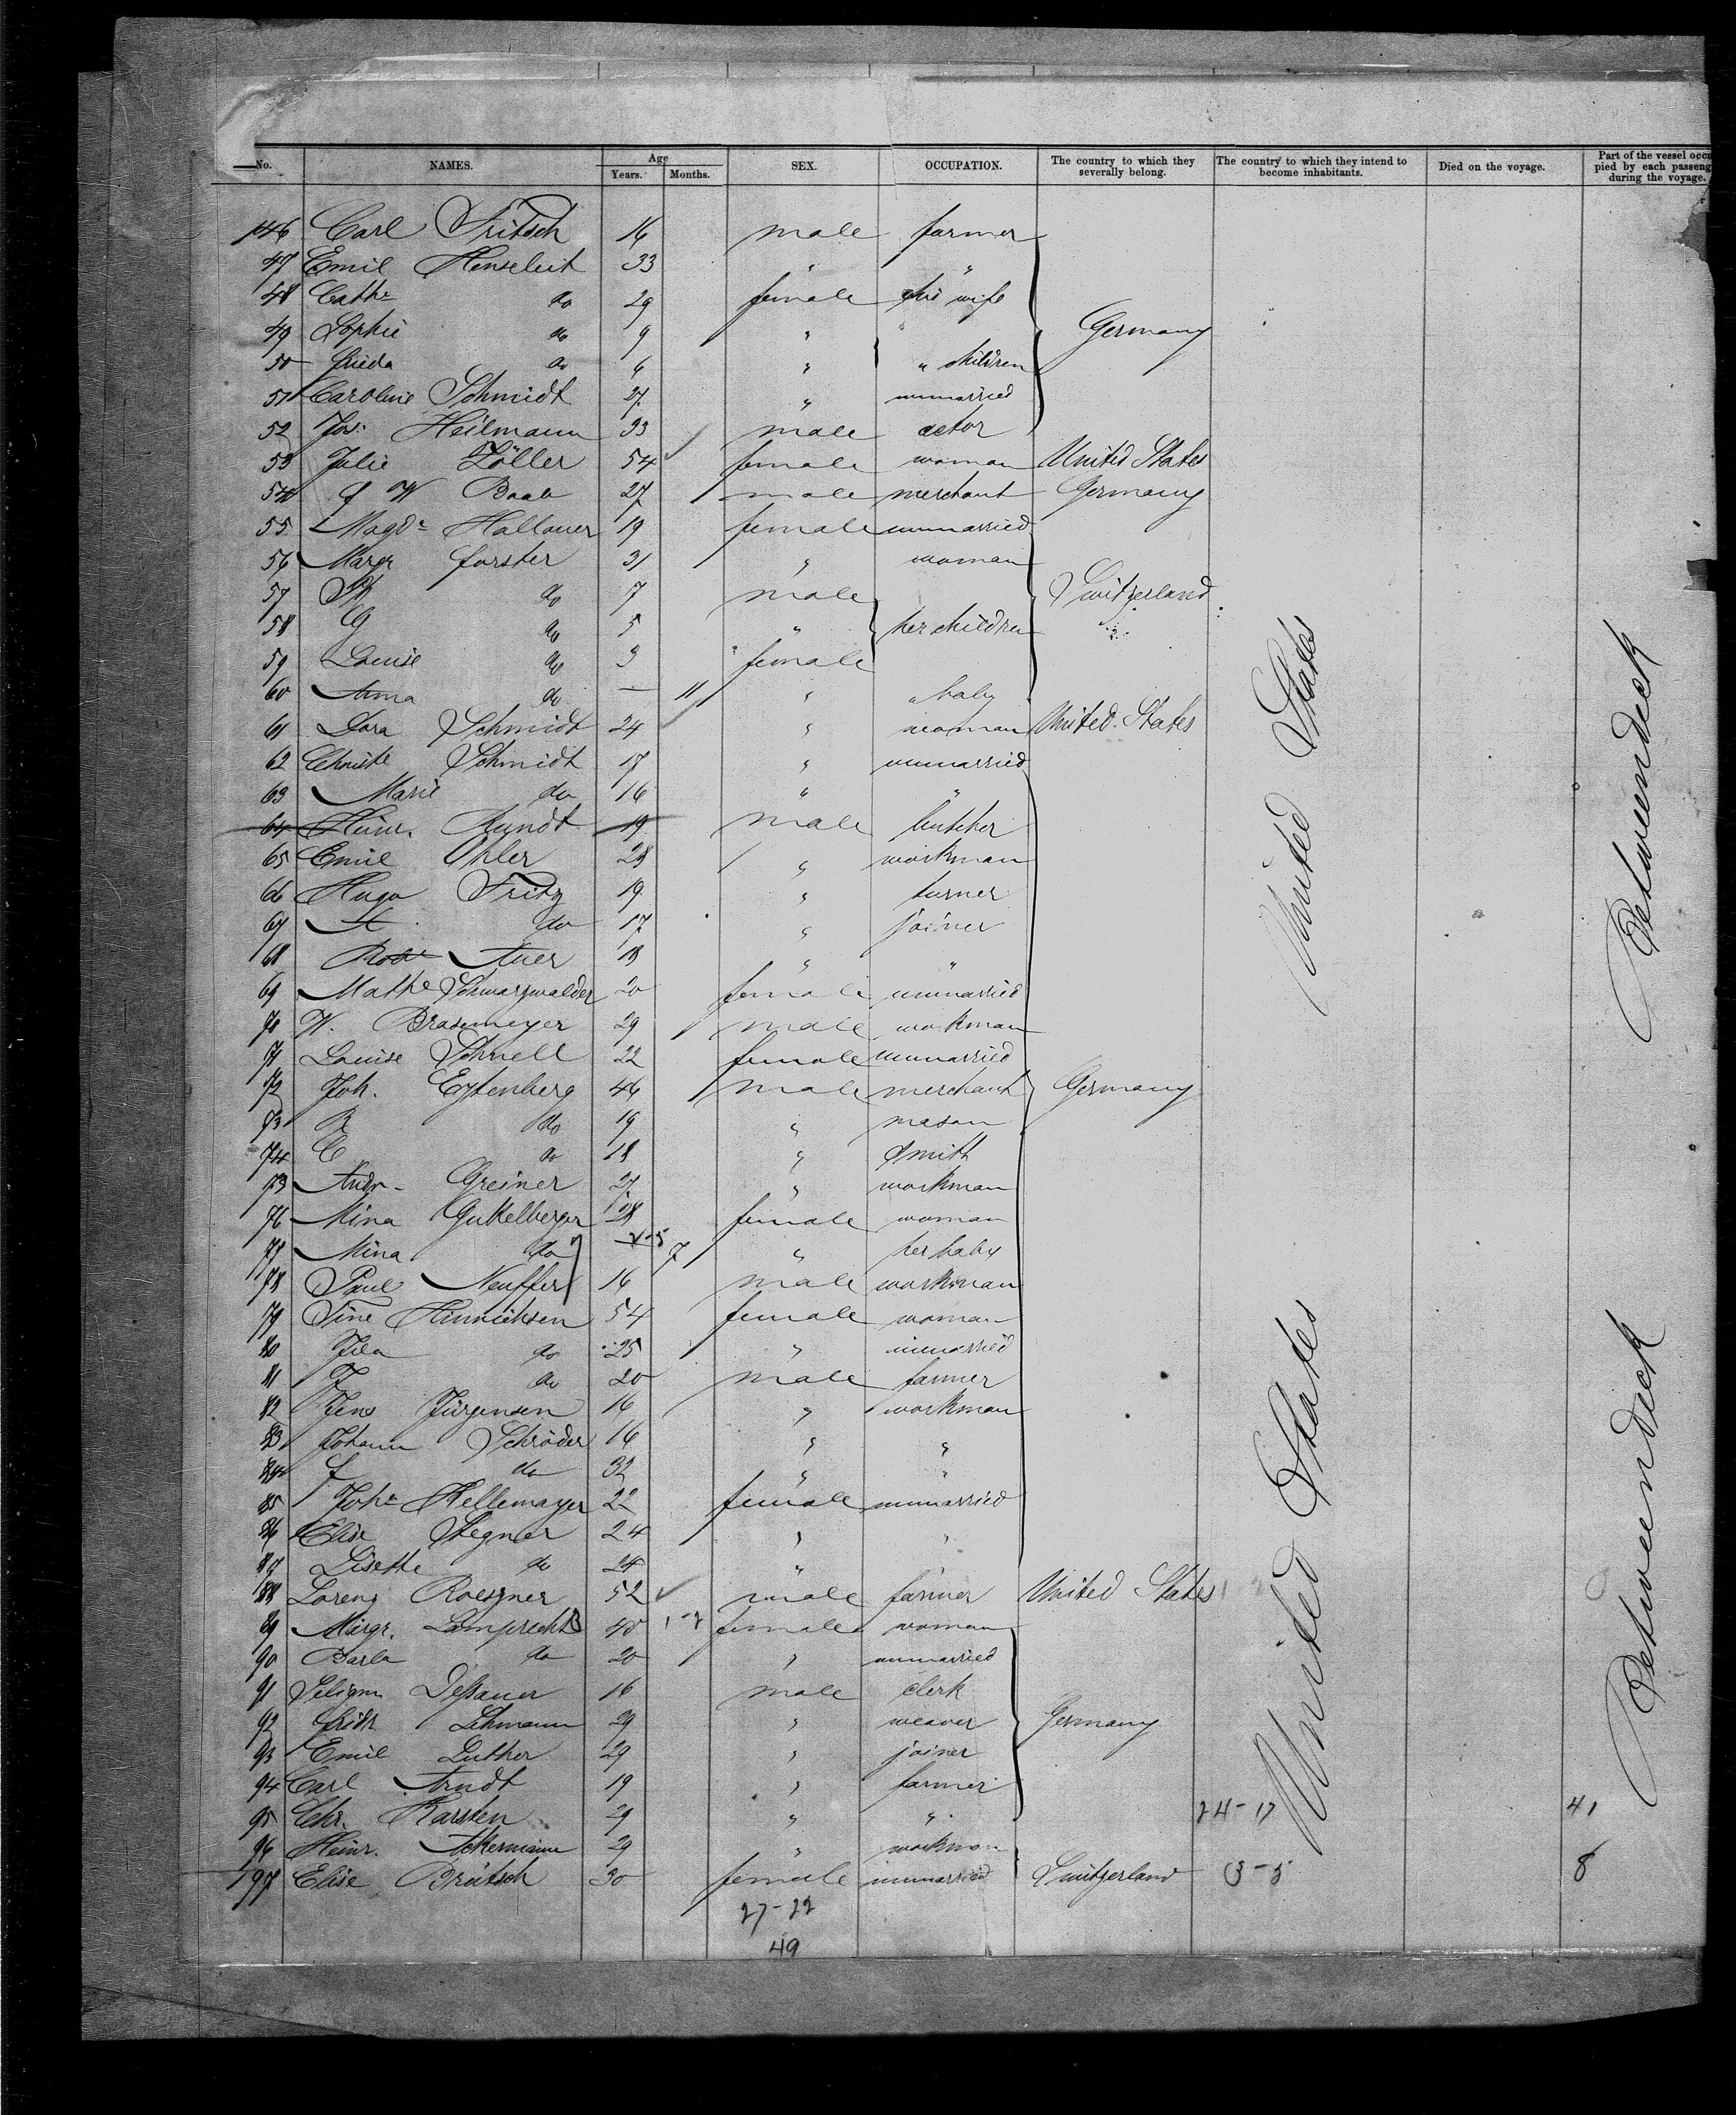 No. NAMES. Age Years. Months. SEX. OCCUPATION. The country to which they severally belong. The country to which they intend to become inhabitants. Died on the voyage. Part of the vessel occu pied by each passeng during the voyage.
146 Carl Fritsch 16 male farmer
47 Emil Henseleit 33 " "
48 Cathe do 29 female his wife
49 Sophie do 9 " " Germany
50 Frieda do 6 " " children
51 Caroline Schmidt 27 " unmarried
52 Jos. Heilmann 33 male actor
53 Julie Zöller 54 female woman United States
54 J W Baab 27 male merchant Germany
55 Magde Hallauer 19 female unmarried
56 Margr Forster 31 " woman
57 do 7 male Switzerland
58 G do 5 " her children
59 Louise do 3 female
60 Anna do — 11 " " baby
61 Dora Schmidt 24 " woman United States
62 Christe Schmidt 17 " unmarried
63 Marie do 16 " "
64 Heinr. Rundt 19 male butcher
65 Emil Ohler 28 " workman
66 Hugo Fritz 19 " turner
67 do 17 " joiner
68 Robt Auer 18 " "
69 Mathe Schwarzwalder 20 female unmarried
70 W. Brasemeyer 29 male workman
71 Louise Schnell 22 female unmarried
72 Joh. Eytenberg 46 male merchant Germany
73 R do 19 " mason
74 C do 18 " smith
75 Andr. Greiner 27 " workman
76 Mina Gukelberger 28 female woman
77 Mina do 7 " her baby
78 Paul Neuffer 16 male workman
79 Tine Hinrichsen 54 female woman
80 do 25 " unmarried
81 J do 20 male farmer
82 Jens Jürgensen 16 " workman
83 Johann Schröder 16 " "
84 J do 32 " "
85 Johe Kellemayer 22 female unmarried
86 Elise Stegner 24 " "
87 Lisette do 24 " "
88 Lorenz Roessner 52 male farmer United States
89 Margr. Lamprecht 40 female woman
90 Barba do 20 " unmarried
91 Seligm Deßauer 16 male clerk
92 Fridr Lehmann 29 " weaver Germany
93 Emil Luther 29 " joiner
94 Carl Arndt 19 " farmer
95 Chr. Karsten 29 " " 24-17 41
96 Heinr. Ackermann 29 " workman
197 Elise Brütsch 30 female unmarried Switzerland 3-5 8
27-22
49
United States
United States
Betweendeck
Betweendeck